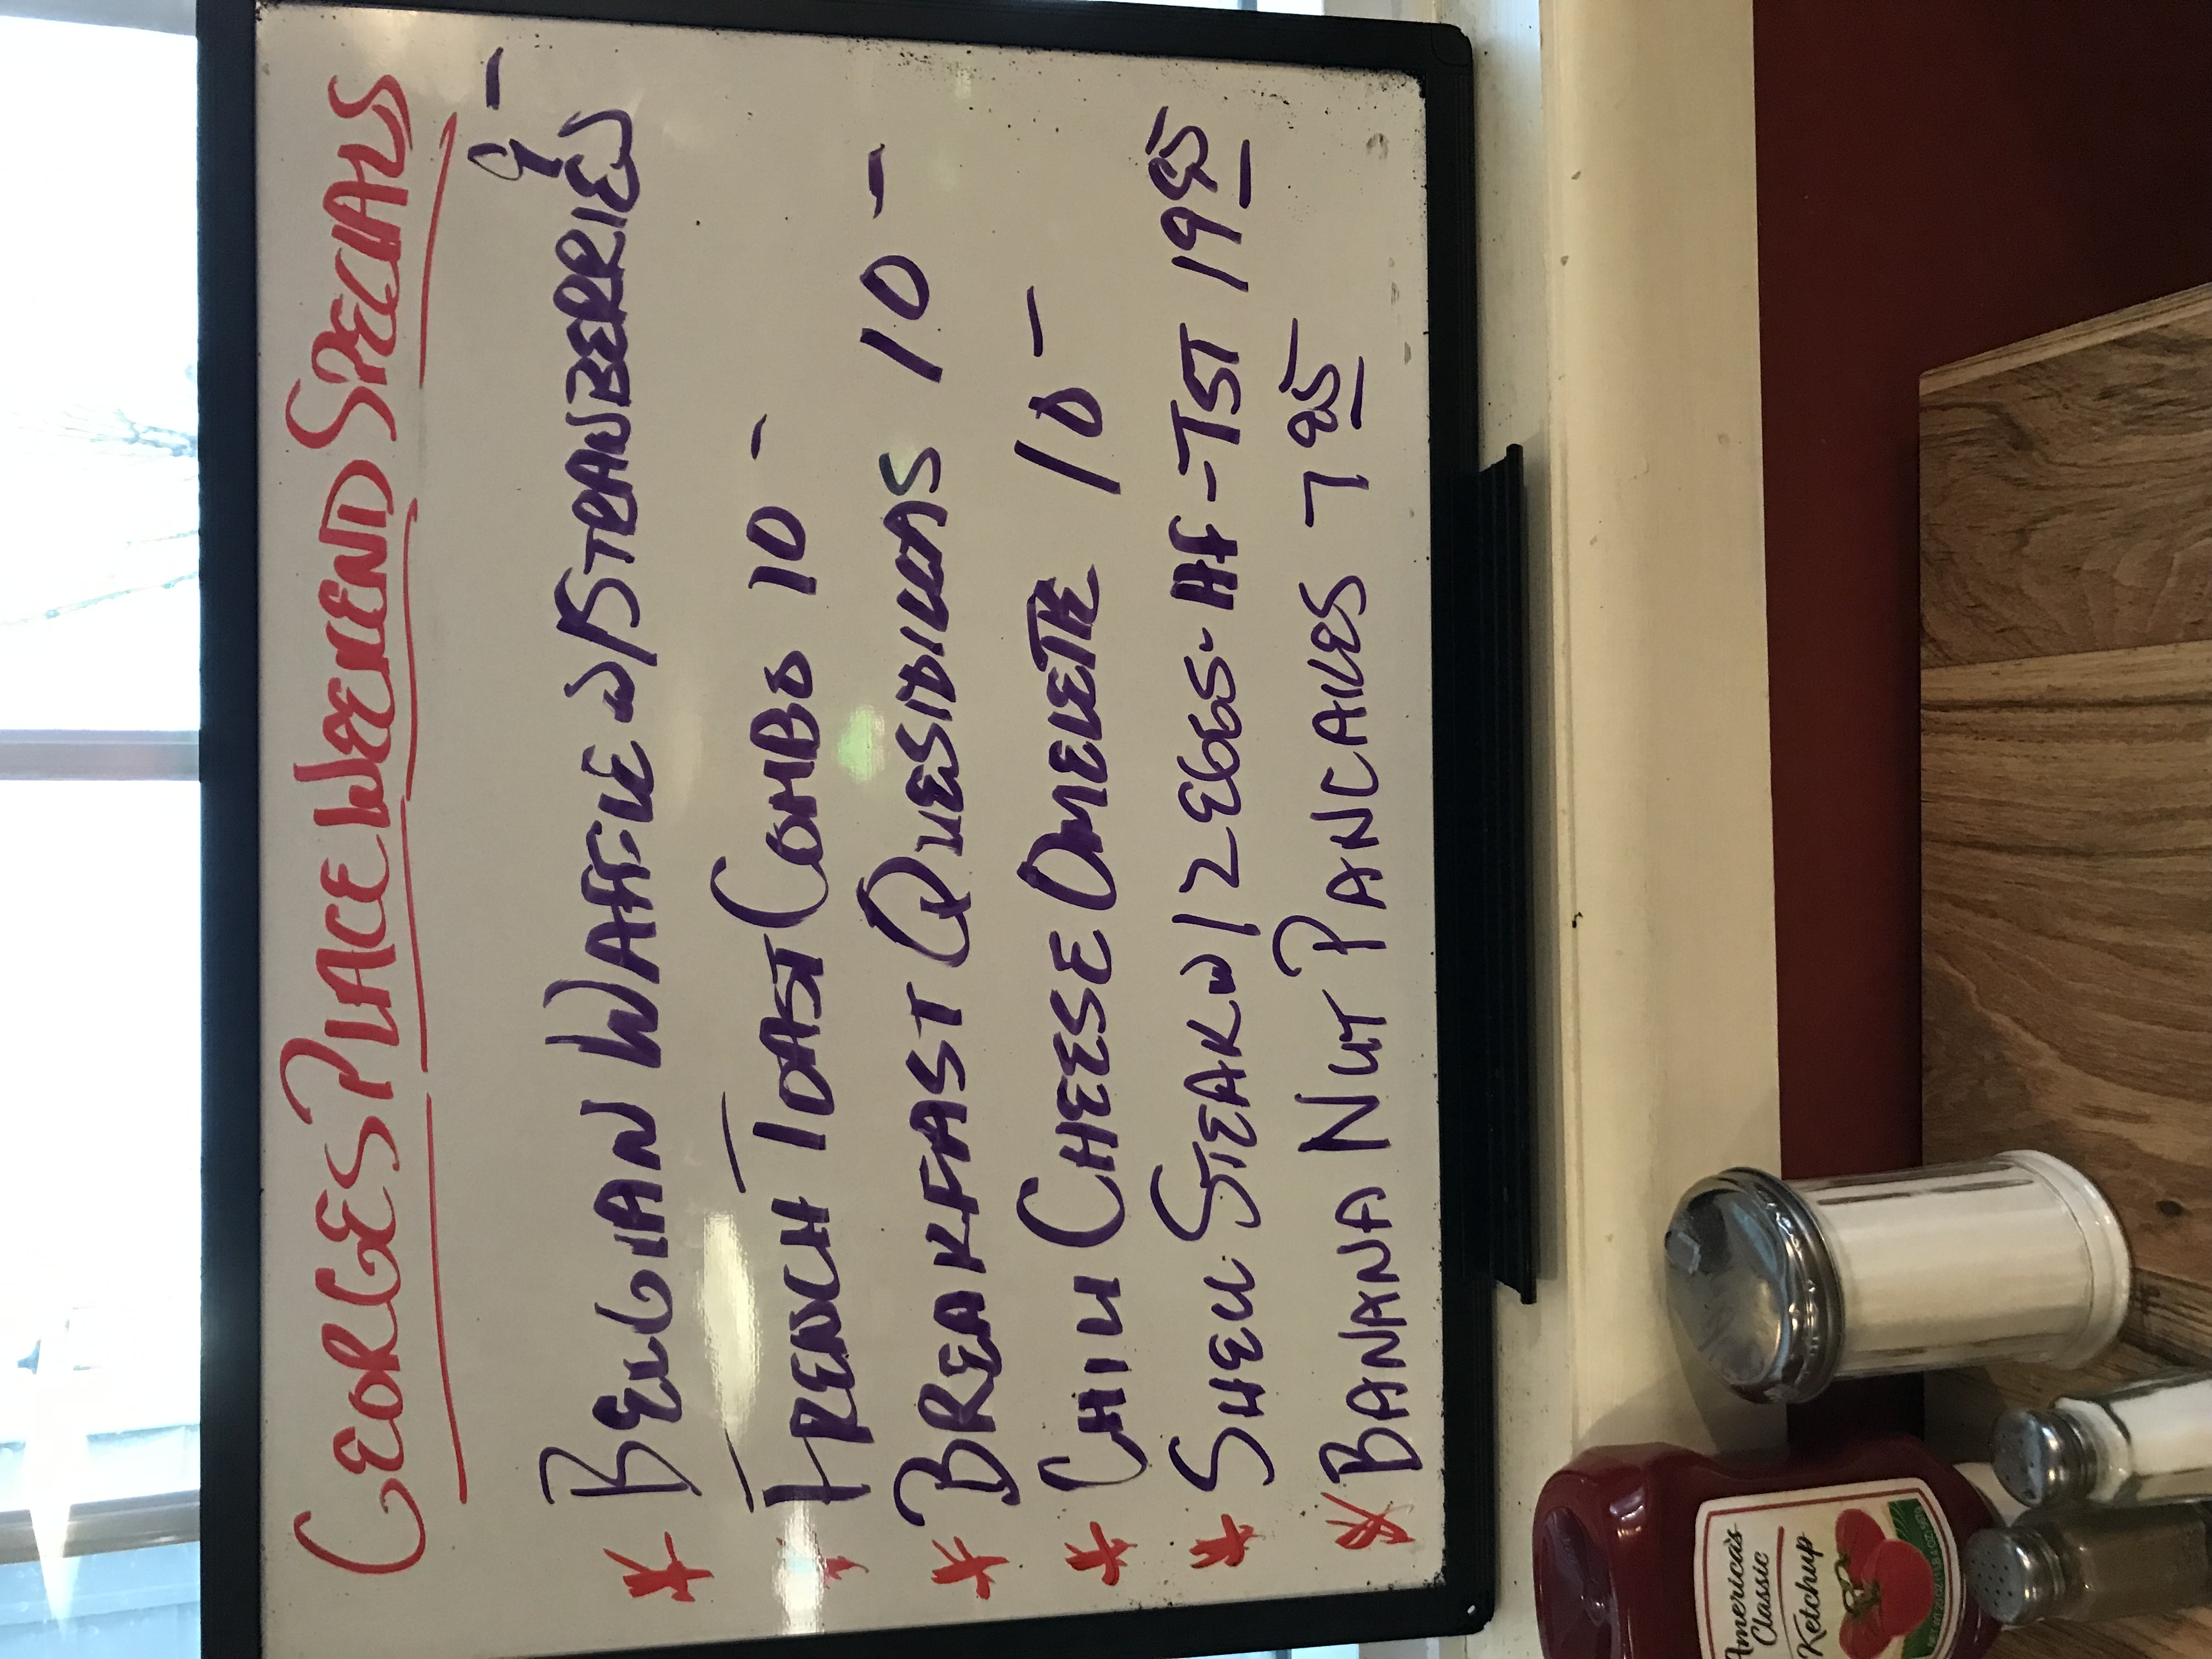 GEORGES PLACE WEEKEND SPECIALS
* BELGIAN WAFFLE W/STRAWBERRIES 9-
* FRENCH TOAST COMBO 10-
* BREAKFAST QUESIDILLAS 10-
* CHILI CHEESE OMELETTE 10-
* SHELL STEAK W/ 2 EGGS-HF-TST 19 95
* BANANA NUT PANCAKES 7 95
America's
Classic
Ketchup